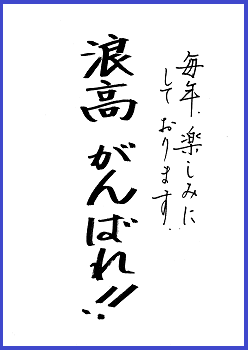 毎年、楽しみに
しております。
浪高 がんばれ!!